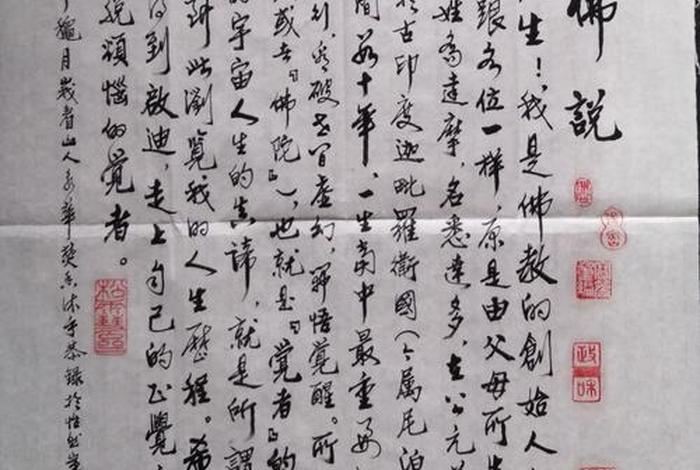 佛說
生！我是佛教的創始人
跟各位一樣，原是由父母所生
姓喬達摩，名悉達多，在公元
於古印度迦毗羅衛國（今属尼泊
間数十年，一生當中最重要
看破世間虛幻，開悟覺醒。所
或者『佛陀』），也就是『覺者』的
的宇宙人生的真諦，就是所謂
此瀏覽我的人生歷程。希
得到啟迪，走上自己的正覺
脫煩惱的覺者。
月 山人 華焚香沐手恭録於